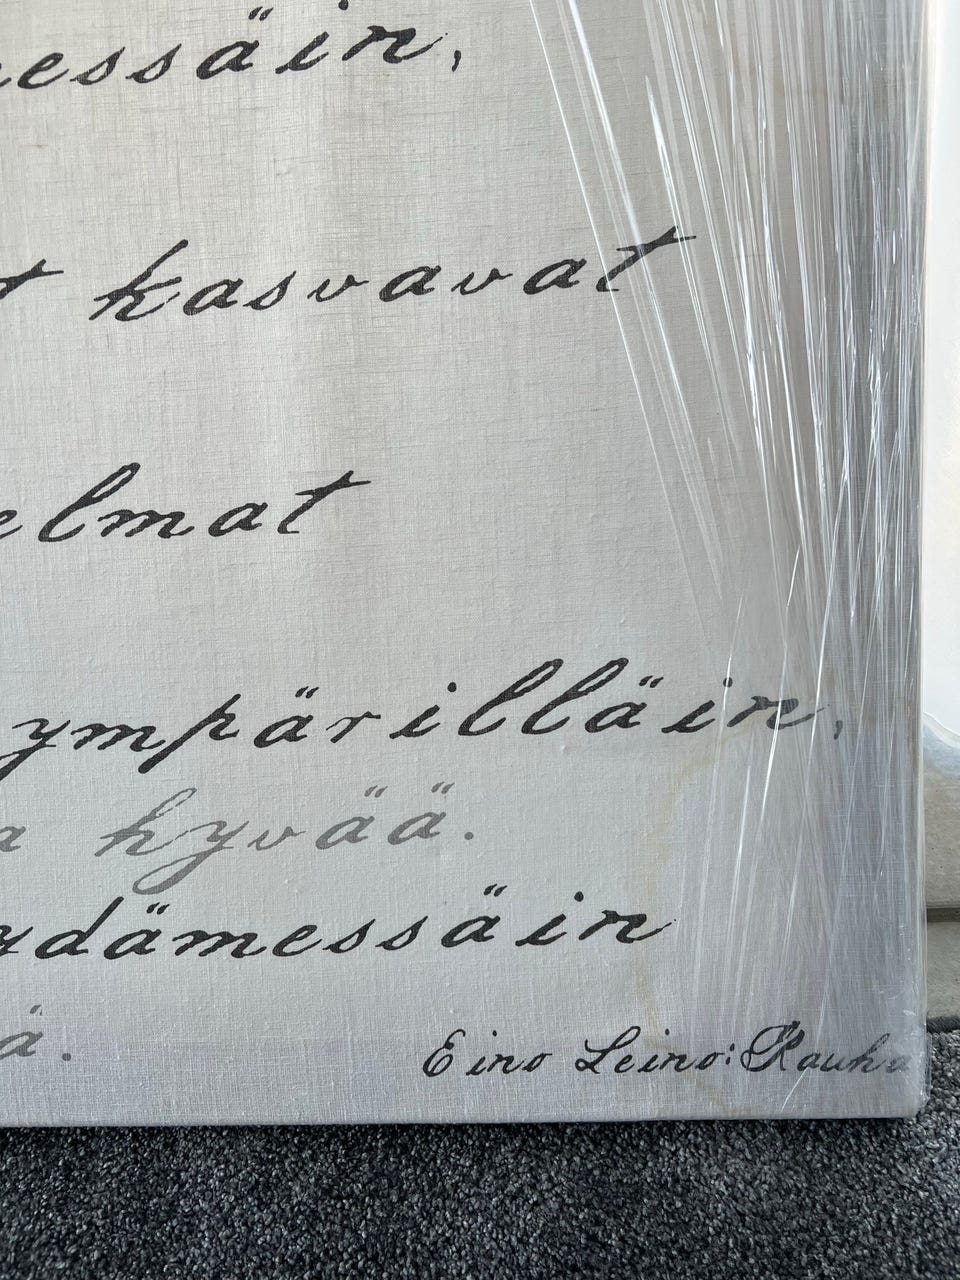 essäin,
t kasvavat
elmat
ympärilläin,
a hyvää.
ydämessäin
ä.
Eino Leino: Rauha